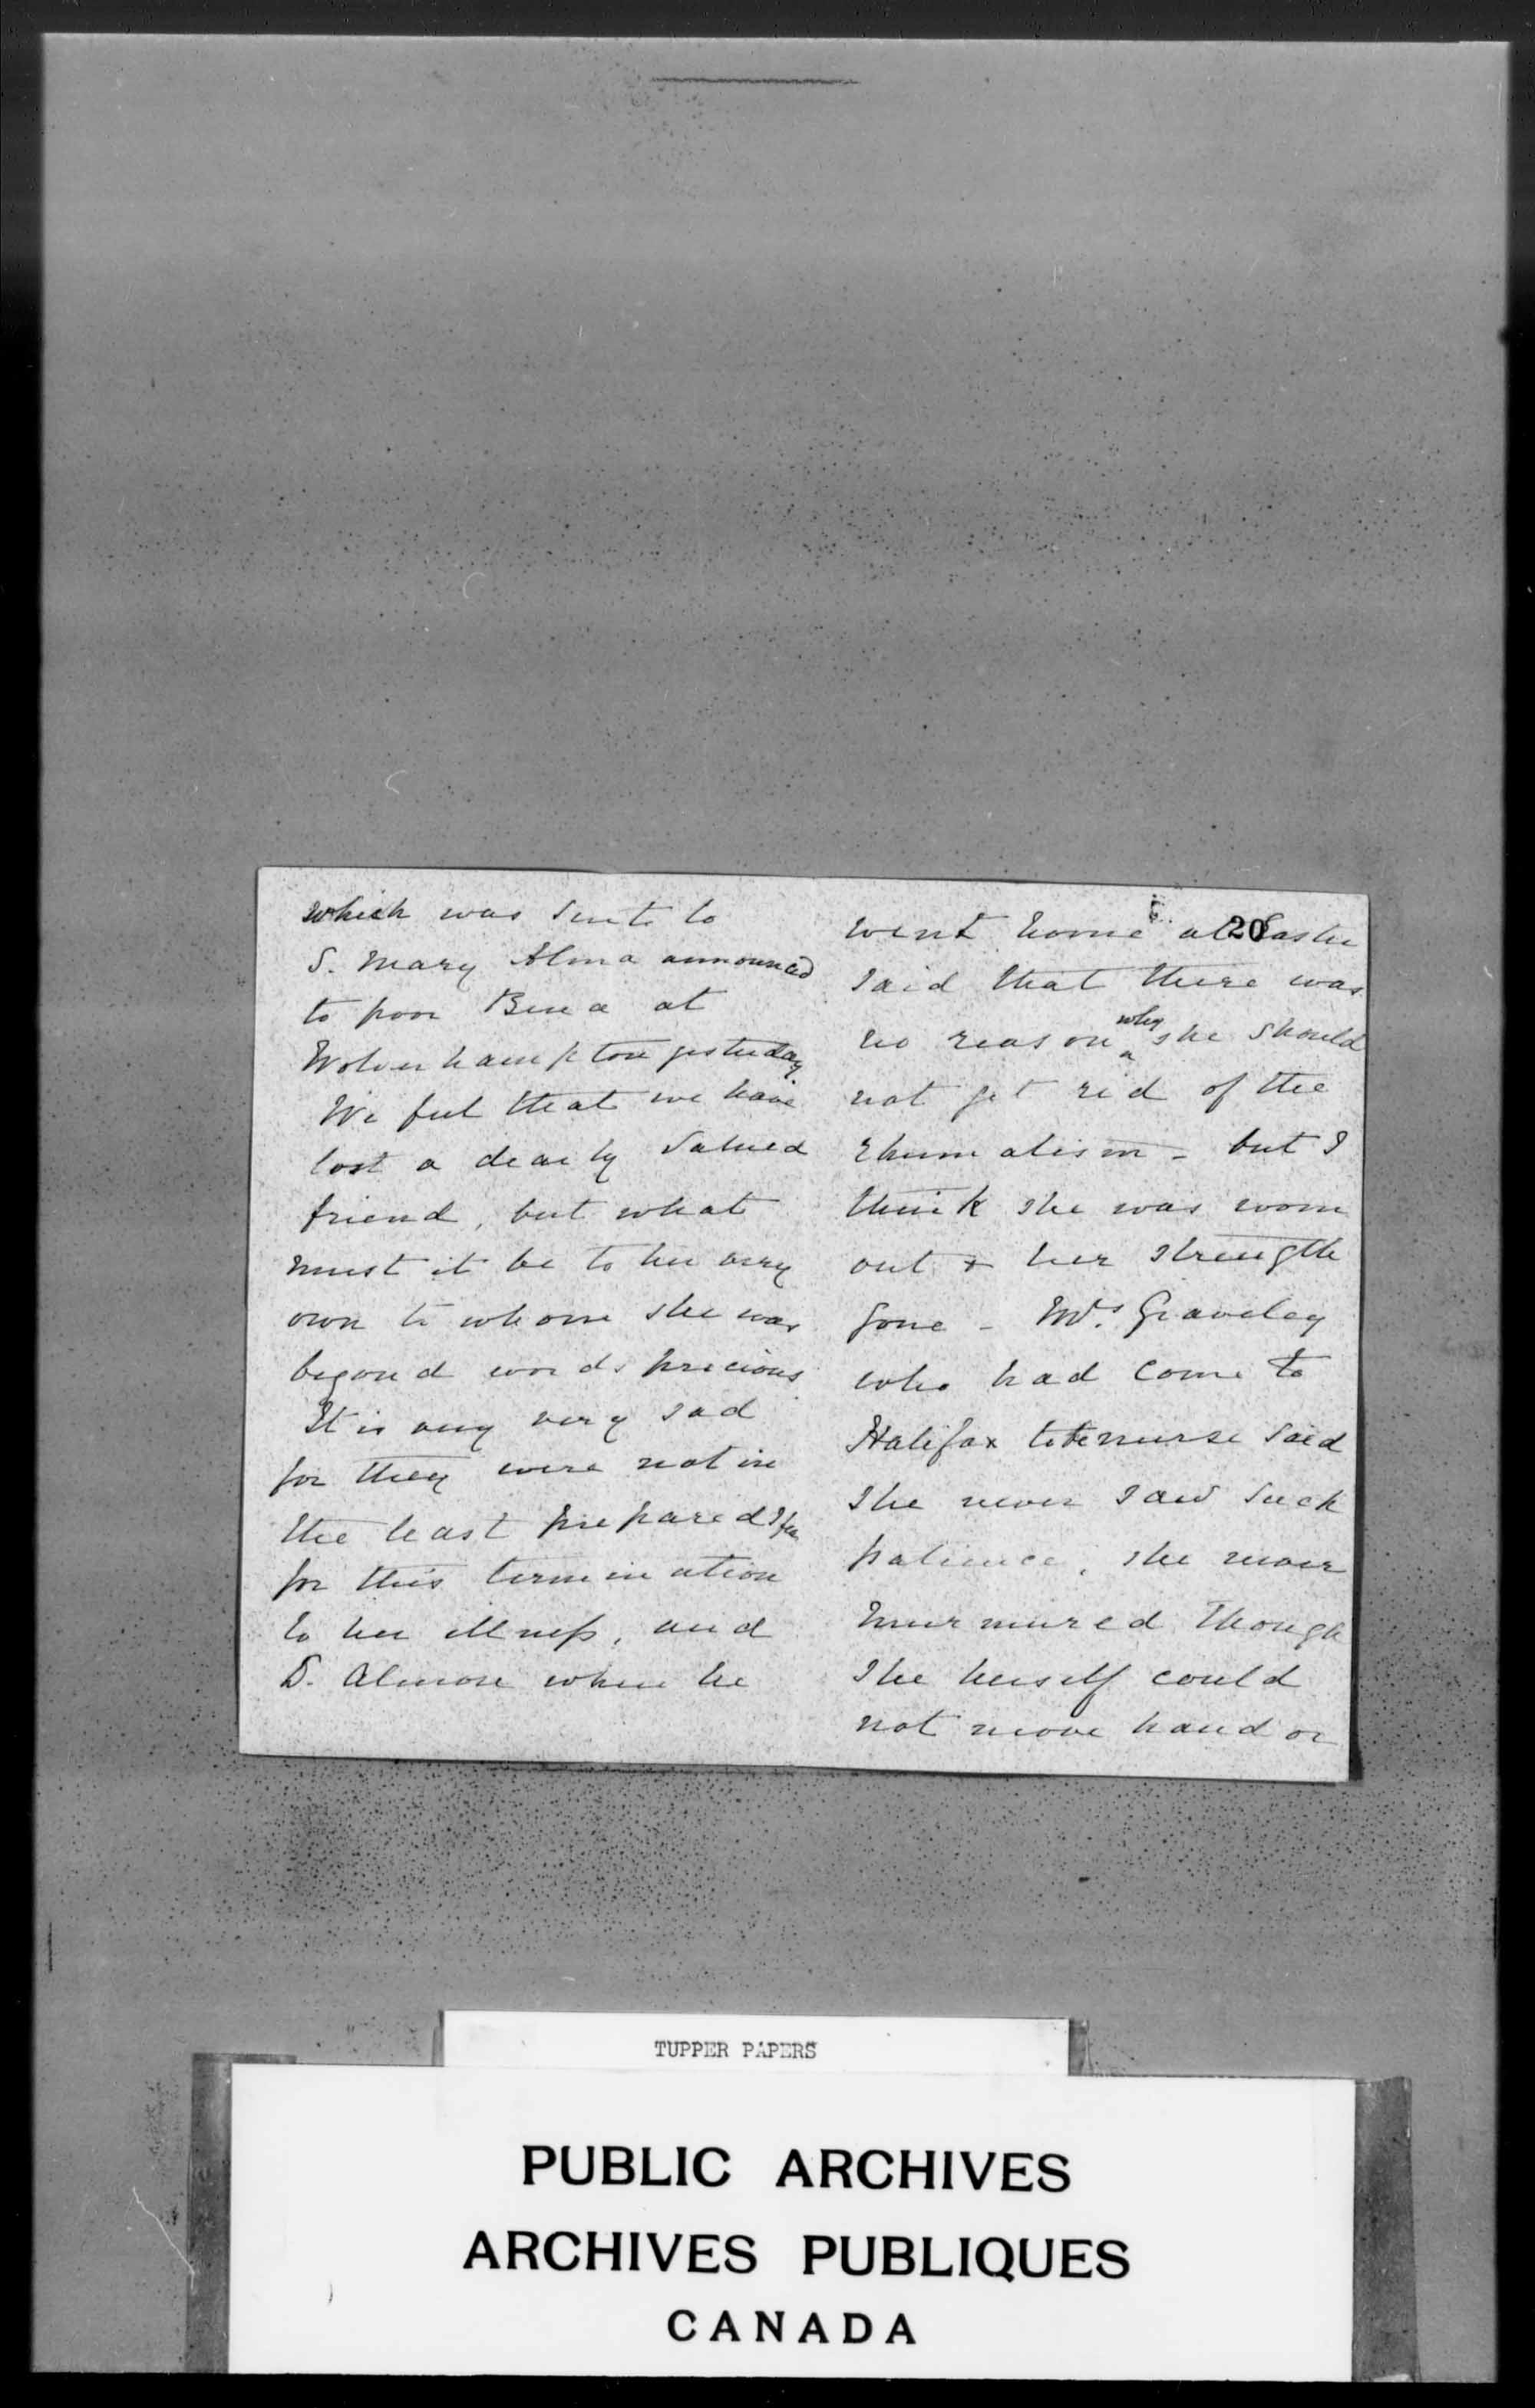 which was sent to
S. Mary Alma announced
to poor Bina at
Wolverhampton yesterday
We feel that we have
lost a dearly valued
friend, but what
must it be to her very
own to whom she was
beyond words precious
It is very very sad
for they were not in
the least prepared I fear
for this termination
to her illness, and
D. Almon when he
20
went home at Easter
said that there was
no reason why she should
not get rid of the
rhumatism - but I
think she was worn
out & her strength
gone - Mrs. Graveley
who had come to
Halifax to nurse said
she never saw such
patience, she never
murmured though
she herself could
not move hand or
TUPPER PAPERS
PUBLIC ARCHIVES
ARCHIVES PUBLIQUES
CANADA